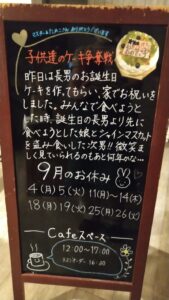 子供達のケーキ争奪戦
昨日は長男のお誕生日
ケーキを作ってもらい、家でお祝いを
しました。みんなで食べようと
した時、誕生日の長男より先に
食べようとした娘とシャインマスカット
を盗み食いした次男!! 微笑ま
しく見ていられるのもあと何年かな…
9月のお休み
4(月)5(火)11(月)〜14(木)
18(月)19(火)25(月)26(火)
Cafeスペース
12:00〜17:00
ラストオーダー 16:00